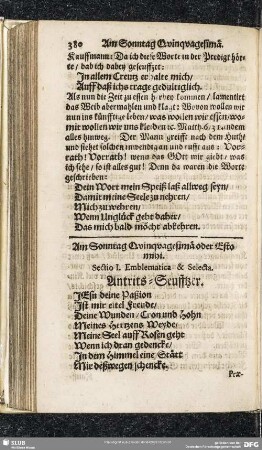 380 Am Sonntag Qvinqvagesimä.
Kauffmann: Da ich diese Worte in der Predigt hör-
te/ hab ich dabey geseuffzet:
In allem Creutz erhalte mich/
Auff daß ichs trage gedultiglich.
Als nun die Zeit zu essen herbey kommen/ lamentirt
das Weib abermahlen und klagt: Wovon wollen wir
nun ins künfftige leben/ was wollen wir essen/ wo-
mit wollen wir uns kleiden ic. Matth. 6. 31. andem
alles hinweg. Der Mann greifft nach dem Huthe
und siehet solchen inwendig an und rufft aus: Vor-
rath! Vorrath! wenn das GOtt mir giebt/ was
ich sehe/ so ist alles gut! Denn da waren die Worte
geschrieben:
Dein Wort mein Speiß laß allweg seyn/
Damit meine Seele zu nehren/
Mich zu wehren/
Wenn Unglück geht daher/
Das mich bald möcht abkehren.
Am Sonntag Qvinqvagesimä oder Esto
mihi.
Sectio I. Emblematica & Selecta.
Antrits-Seufftzer.
JEsu deine Paßion
Ist mir eitel Freude/
Deine Wunden/ Cron und Hohn
Meines Hertzens Weyde/
Meine Seel auff Rosen geht
Wenn ich dran gedencke/
In dem Himmel eine Stätt
Mir deßwegen schencke.
SLUB
DFG